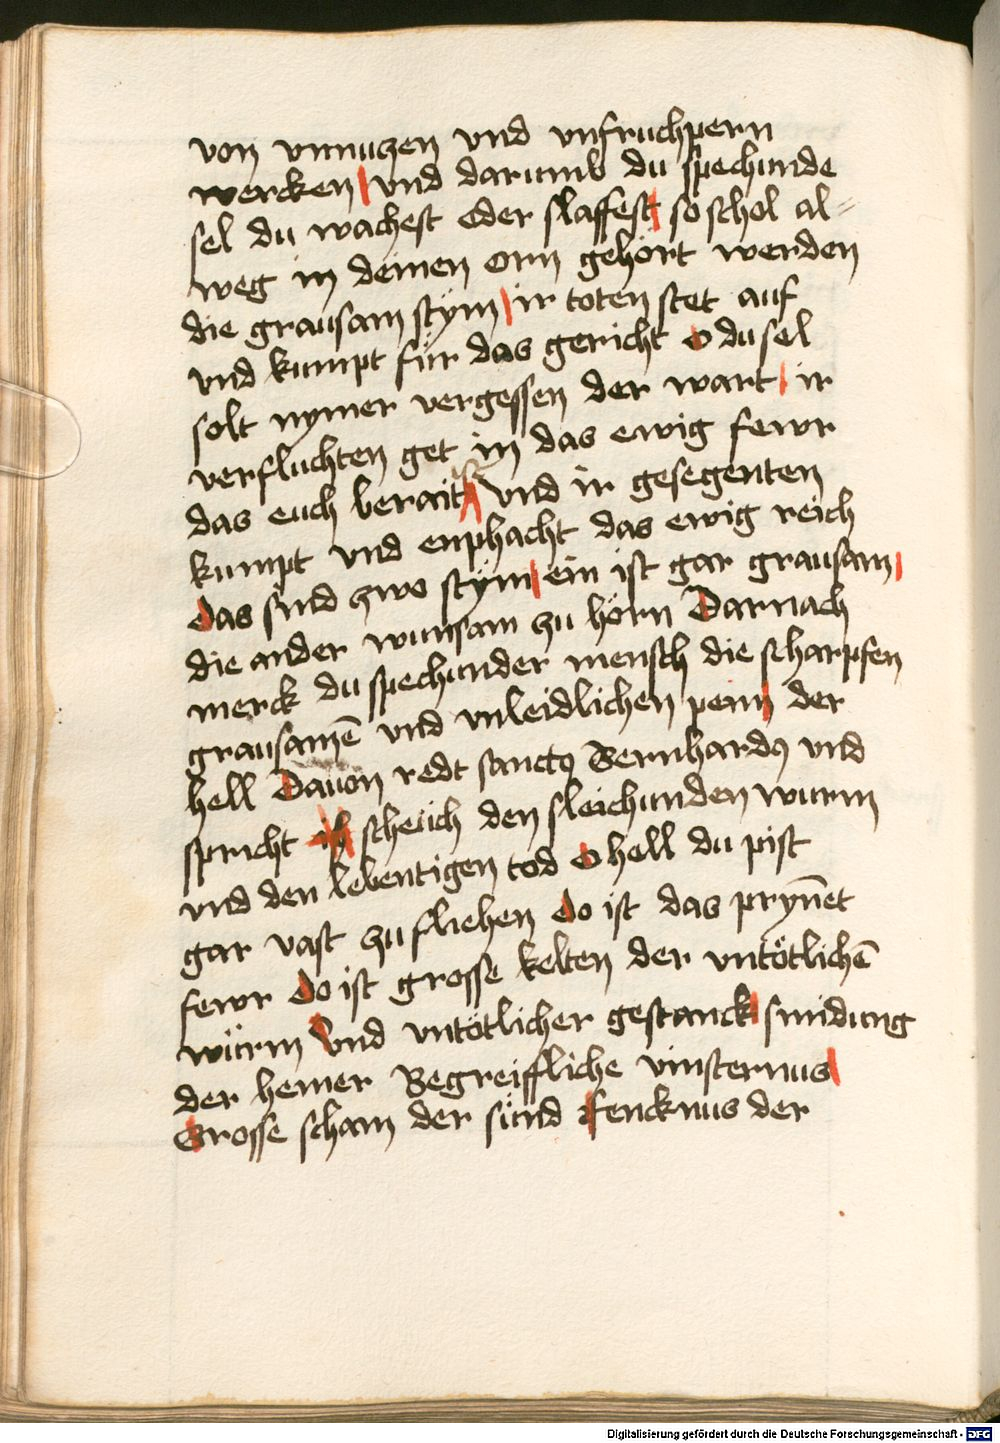 von vnnuczen vnd vnfruchpern
wercken | vnd darumb du spechunde
sel du wachest oder slaffest | so schol al=
weg in deinen orn gehört werden
die grausam stÿm | ir toten stet auf
vnd kumpt für das gericht O du sel
solt nymer vergessen der wart | ir
verfluchten get in das ewig fewr
das euch berait ist vnd ir gesegenten
kumpt vnd enphacht das ewig reich
Das sind zwo stÿm | ein ist gar grausam |
die ander wunsam zu hörn Darnach
merck du spechunder mensch die scharpfen
grausamē vnd vnleidlichen pein | der
hell Dauon redt sanctꝰ Bernhardꝰ vnd
spricht ich scheüch den sleichunden wurm
vnd den lebentigen tod O hell du pist
gar vast zu fliehen Do ist das prynēt
fewr Do ist grosse kelten der vntötlichē
würm vnd vntötlicher gestanck | smidung
der hemer Begreiffliche vinsternus |
Grosse scham der sünd fencknus der
Digitalisierung gefördert durch die Deutsche Forschungsgemeinschaft - DFG